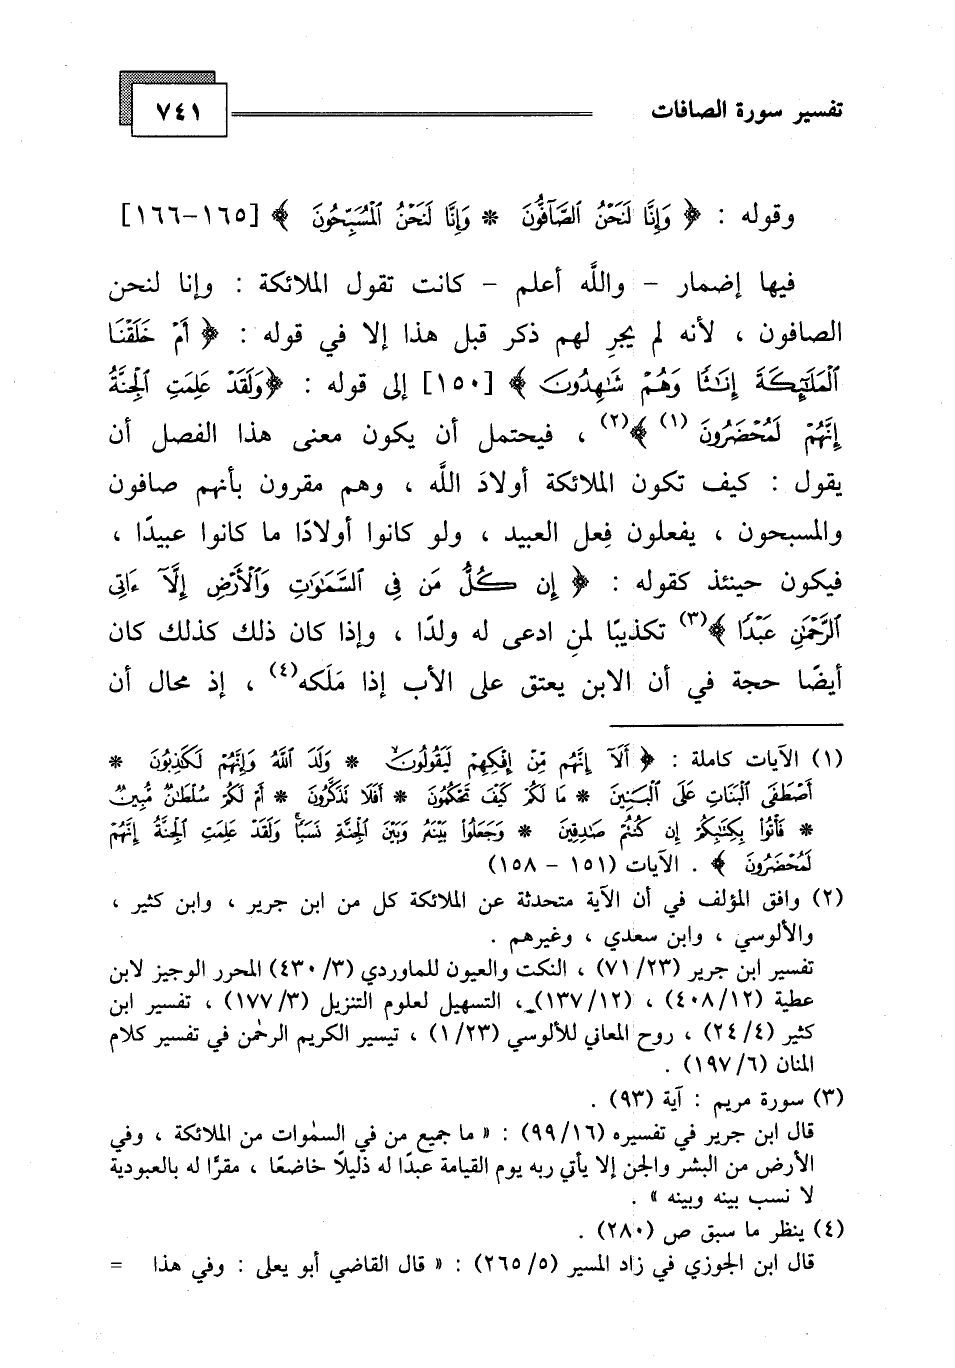 تفسير سورة الصافات
٧٤١
وقوله : ﴿ وَإِنَّا لَنَحْنُ ٱلصَّآفُّونَ * وَإِنَّا لَنَحْنُ ٱلْمُسَبِّحُونَ ﴾ [١٦٥-١٦٦]
فيها إضمار - واللَّه أعلم - كانت تقول الملائكة : وإنا لنحن
الصافون ، لأنه لم يجرِ لهم ذكر قبل هذا إلا في قوله : ﴿ أَمْ خَلَقْنَا
ٱلْمَلَٰٓئِكَةَ إِنَٰثًا وَهُمْ شَٰهِدُونَ ﴾ [١٥٠] إلى قوله : ﴿وَلَقَدْ عَلِمَتِ ٱلْجِنَّةُ
إِنَّهُمْ لَمُحْضَرُونَ (١) ﴾(٢) ، فيحتمل أن يكون معنى هذا الفصل أن
يقول : كيف تكون الملائكة أولادَ اللَّه ، وهم مقرون بأنهم صافون
والمسبحون ، يفعلون فِعل العبيد ، ولو كانوا أولادًا ما كانوا عبيدًا ،
فيكون حينئذ كقوله : ﴿ إِن كُلُّ مَن فِى ٱلسَّمَٰوَٰتِ وَٱلْأَرْضِ إِلَّآ ءَاتِى
ٱلرَّحْمَٰنِ عَبْدًا ﴾(٣) تكذيبًا لمنِ ادعى له ولدًا ، وإذا كان ذلك كذلك كان
أيضًا حجة في أن الابن يعتق على الأب إذا مَلَكه(٤) ، إذ محال أن
(١) الآيات كاملة : ﴿ أَلَآ إِنَّهُم مِّنْ إِفْكِهِمْ لَيَقُولُونَ * وَلَدَ ٱللَّهُ وَإِنَّهُمْ لَكَٰذِبُونَ *
أَصْطَفَى ٱلْبَنَاتِ عَلَى ٱلْبَنِينَ * مَا لَكُمْ كَيْفَ تَحْكُمُونَ * أَفَلَا تَذَكَّرُونَ * أَمْ لَكُمْ سُلْطَٰنٌ مُّبِينٌ
* فَأْتُوا۟ بِكِتَٰبِكُمْ إِن كُنتُمْ صَٰدِقِينَ * وَجَعَلُوا۟ بَيْنَهُۥ وَبَيْنَ ٱلْجِنَّةِ نَسَبًا وَلَقَدْ عَلِمَتِ ٱلْجِنَّةُ إِنَّهُمْ
لَمُحْضَرُونَ ﴾ . الآيات (١٥١ - ١٥٨)
(٢) وافق المؤلف في أن الآية متحدثة عن الملائكة كل من ابن جرير ، وابن كثير ،
والألوسي ، وابن سعدي ، وغيرهم .
تفسير ابن جرير (٧١/٢٣) ، النكت والعيون للماوردي (٤٣٠/٣) المحرر الوجيز لابن
عطية (٤٠٨/١٢) ، (١٣٧/١٢) ، التسهيل لعلوم التنزيل (١٧٧/٣) ، تفسير ابن
كثير (٢٤/٤) ، روح المعاني للألوسي (١/٢٣) ، تيسير الكريم الرحمٰن في تفسير كلام
المنان (١٩٧/٦) .
(٣) سورة مريم : آية (٩٣) .
قال ابن جرير في تفسيره (٩٩/١٦) : « ما جميع من في السمٰوات من الملائكة ، وفي
الأرض من البشر والجن إلا يأتي ربه يوم القيامة عبدًا له ذليلًا خاضعًا ، مقرًّا له بالعبودية
لا نسب بينه وبينه » .
(٤) ينظر ما سبق ص (٢٨٠) .
قال ابن الجوزي في زاد المسير (٢٦٥/٥) : « قال القاضي أبو يعلى : وفي هذا =